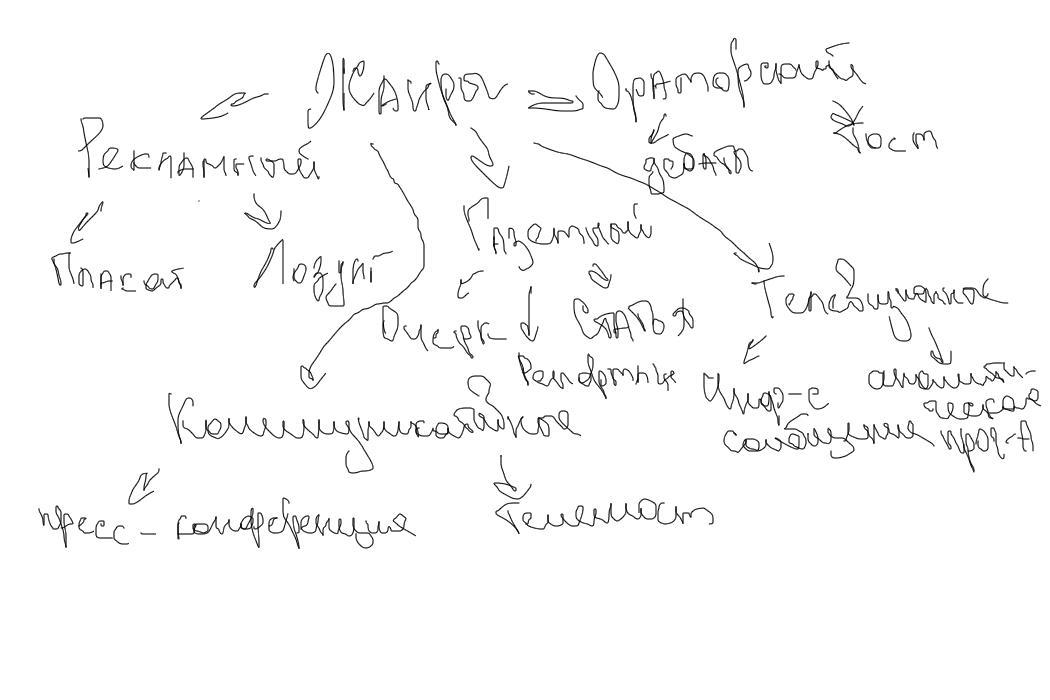 Жанры
Ораторский
Рекламный
дебаты
Тост
Плакат
Лозунг
Газетный
Очерк
Статья
Репортаж
Телевиционное
Инф-е
сообщение
аналити-
ческая
прог-А
Коммуникативное
пресс-конференция
Телемост